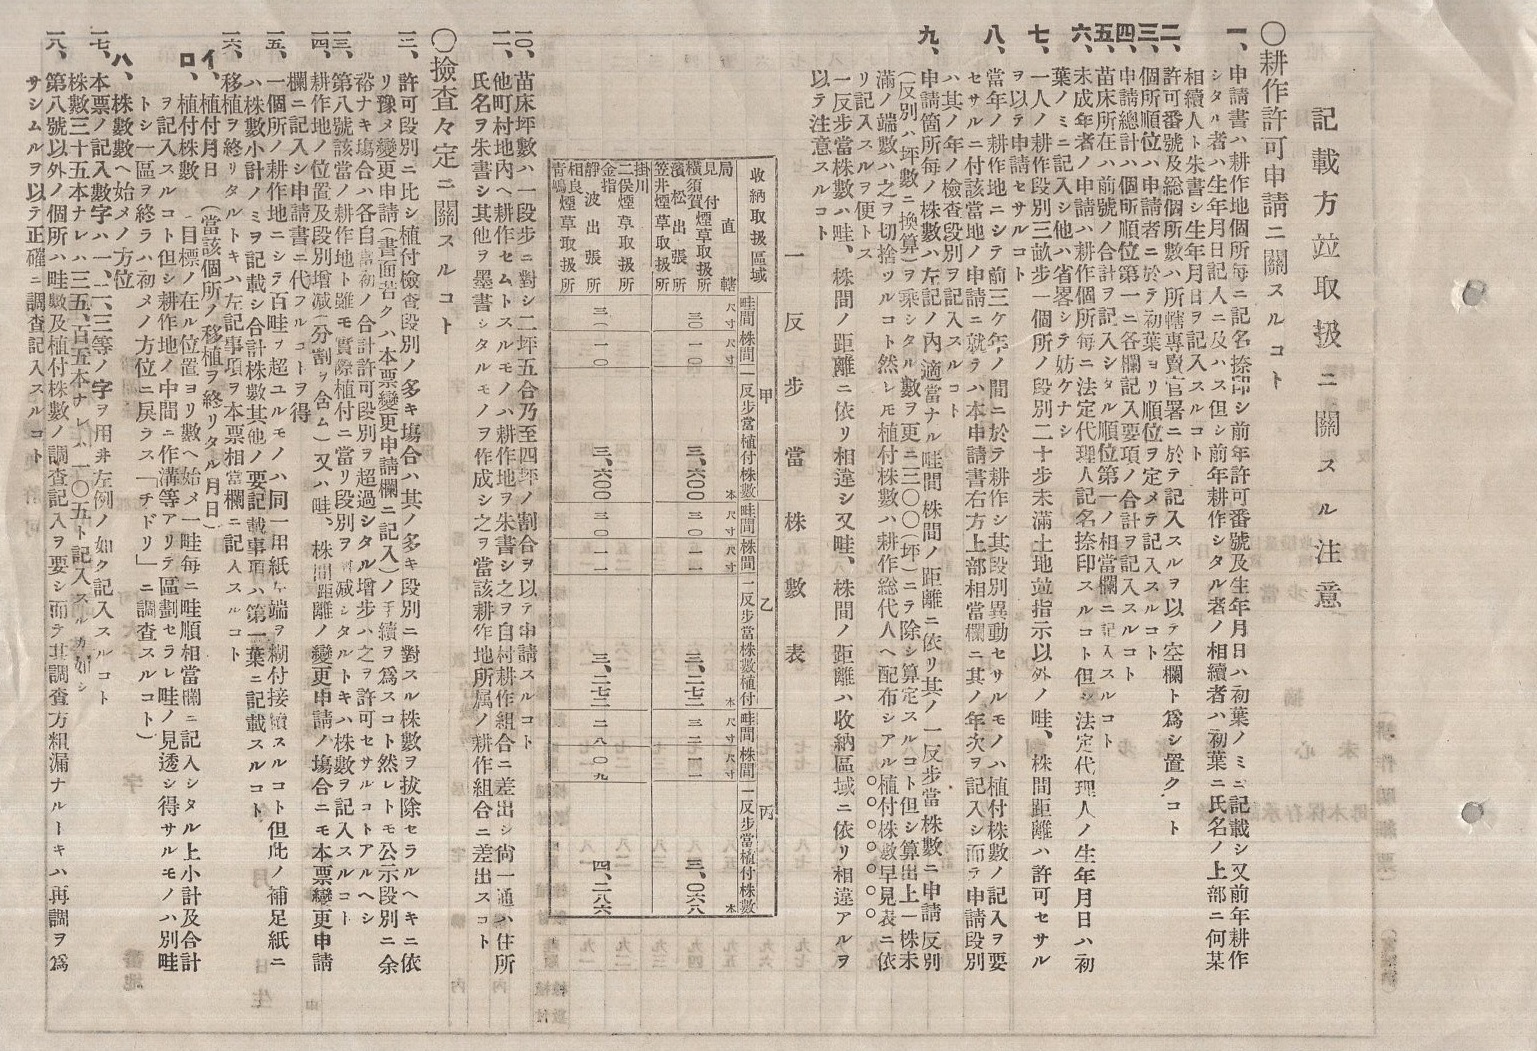 記載方竝取扱ニ關スル注意
〇耕作許可申請ニ關スルコト
一、申請書ハ耕作地個所每ニ記名捺印シ前年許可番號及生年月日ハ初葉ノミニ記載シ又前年耕作
シタル者ハ生年月日記入ニ及ハス但シ前年耕作シタル者ノ相續者ハ初葉ニ氏名ノ上部ニ何某
相續人ト朱書シ生年月日ヲ記入スルコト
二、許可番號及総個所數ハ所轄專賣官署ニ於テ記入スルヲ以テ空欄ト爲シ置クコト
三、個所順位ハ申請者ニ於テ初葉ヨリ順位ヲ定メテ記入スルコト
四、申請總計ハ個所順位第一ニ各欄記入要項ノ合計ヲ記入スルコト
五、苗床所在ハ前號ノ合計ヲ記入シタル順位第一ノ相當欄ニ記入スルコト
六、未成年者ノ申請ハ耕作個所每ニ法定代理人記名捺印スルコト但シ法定代理人ノ生年月日ハ初
葉ノミニ記入シ他ハ省畧シテ妨ケナシ
七、一人ノ耕作段別三畝步一個所ノ段別二十步未滿ノ土地竝指示以外ノ畦、株間距離ハ許可セサル
ヲ以テ申請セサルコト
八、當年ノ耕作地ニシテ前三ケ年ノ間ニ於テ耕作シ其段別異動セサルモノハ植付株數ノ記入ヲ要
セサルニ付該當地ノ申請ニ就テハ本申請書右方上部相當欄ニ其ノ年次ヲ記入シ而テ申請段別
ハ其ノ年ノ檢査段別ヲ記入スルコト
九、申請箇所每ノ株數ハ左記ノ內適當ナル畦間株間ノ距離ニ依リ其ノ一反步當株數ニ申請反別
(反別ハ坪數ニ換算)ヲ乘シタル數ヲ更ニ三〇〇(坪)ニテ除シ算定スルコト但シ算出上一株未
滿ノ端數ハ之ヲ切捨ツルコト然レモ植付株數ハ耕作総代人ヘ配布シアル植付株數早見表ニ依
リ記入スルヲ便トス
一反步當株數ハ畦、株間ノ距離ニ依リ相違シ又畦、株間ノ距離ハ收納區域ニ依リ相違アルヲ
以テ注意スルコト
一反步當株數表
收納取扱區域
甲
畦間
株間
一反步當植付株數
乙
畦間
株間
一反步當株數植付
丙
畦間
株間
一反步當植付株數
局直轄
見付
橫須賀煙草取扱所
濱松出張所
笠井煙草取扱所
三〇
一〇
三、六〇〇本
三〇
一一
三、二七三本
三二
一一
三、〇六八本
掛川
二俣煙草取扱所
金指
靜波出張所
相良煙草取扱所
靑嶋
三〇
一〇
三、六〇〇
三〇
一一
三、二七三
二八
〇九
四、二八六
一〇、苗床坪數ハ一段步ニ對シ二坪五合乃至四坪ノ割合ヲ以テ申請スルコト
一一、他町村地內ヘ耕作セムトスルモノハ耕作地ヲ朱書シ之ヲ自村耕作組合ニ差出シ尙一通ハ住所
氏名ヲ朱書シ其他ヲ墨書シタルモノヲ作成シ之ヲ當該耕作地所属ノ耕作組合ニ差出スコト
〇撿査々定ニ關スルコト
一二、許可段別ニ比シ植付檢査段別ノ多キ塲合ハ其ノ多キ段別ニ對スル株數ヲ拔除セラルヘキニ依
リ豫メ變更申請(書面若クハ本票變更申請欄ニ記入)ノ手續ヲ爲スコト然レトモ公示段別ニ余
裕ナキ塲合ハ各自當初ノ合計許可段別ヲ超過シタル增步ハ之ヲ許可セサルコトアルヘシ
一三、第八號該當ノ耕作地ト雖モ實際植付ニ當リ段別ヲ減シタルトキハ株數ヲ記入スルコト
一四、耕作地ノ位置及段別增減(分割ヲ含ム)又ハ畦、株間距離ノ變更申請ノ塲合ニモ本票變更申請
欄ニ記入シ申請書ニ代フルコトヲ得
一五、一個所ノ耕作地ニシテ百畦ヲ超ユルモノハ同一用紙ヲ端ヲ糊付接續スルコト但此ノ補足紙ニ
ハ株數小計ノミヲ記載シ合計株數其他ノ要記載事項ハ第一葉ニ記載スルコト
一六、移植ヲ終リタルトキハ左記事項ヲ本票相當欄ニ記入スルコト
イ、植付月日 (當該個所ノ移植ヲ終リタル月日)
ロ、植付株數 (目標ノ在ル位置ヨリ數ヘ始メ一畦每ニ畦順相當欄ニ記入シタル上小計及合計
ヲ記入スルコト但シ耕作地ノ中間ニ作溝等アリテ區劃セラレ畦ノ見透シ得サルモノハ別畦
トシ一區ヲ終ラハ初メノ方位ニ戾ラス「チドリ」ニ調査スルコト)
ハ、株數數ヘ始メノ方位
一七、本票ノ記入數字ハ一、二、三等ノ字ヲ用井左例ノ如ク記入スルコト
株數三十五本ナレハ三五、百五本ナレハ一〇五ト記入スルカ如シ
一八、第八號以外ノ個所ハ畦數及植付株數ノ調査記入ヲ要シ而テ其調査方粗漏ナルトキハ再調ヲ爲
サシムルヲ以テ正確ニ調査記入スルコト